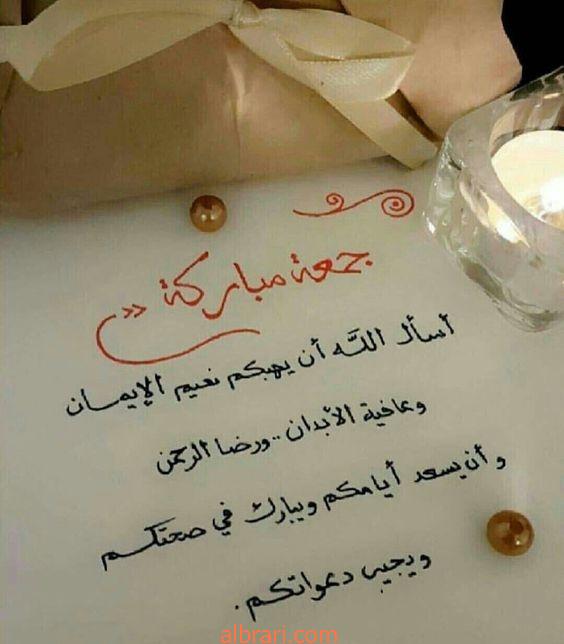 جمعة مباركة »
أسأل الله أن يهبكم نعيم الإيمان
وعافية الأبدان .. ورضا الرحمن
وأن يسعد أيامكم ويبارك في صحتكم
ويجيب دعواتكم .
albrari.com